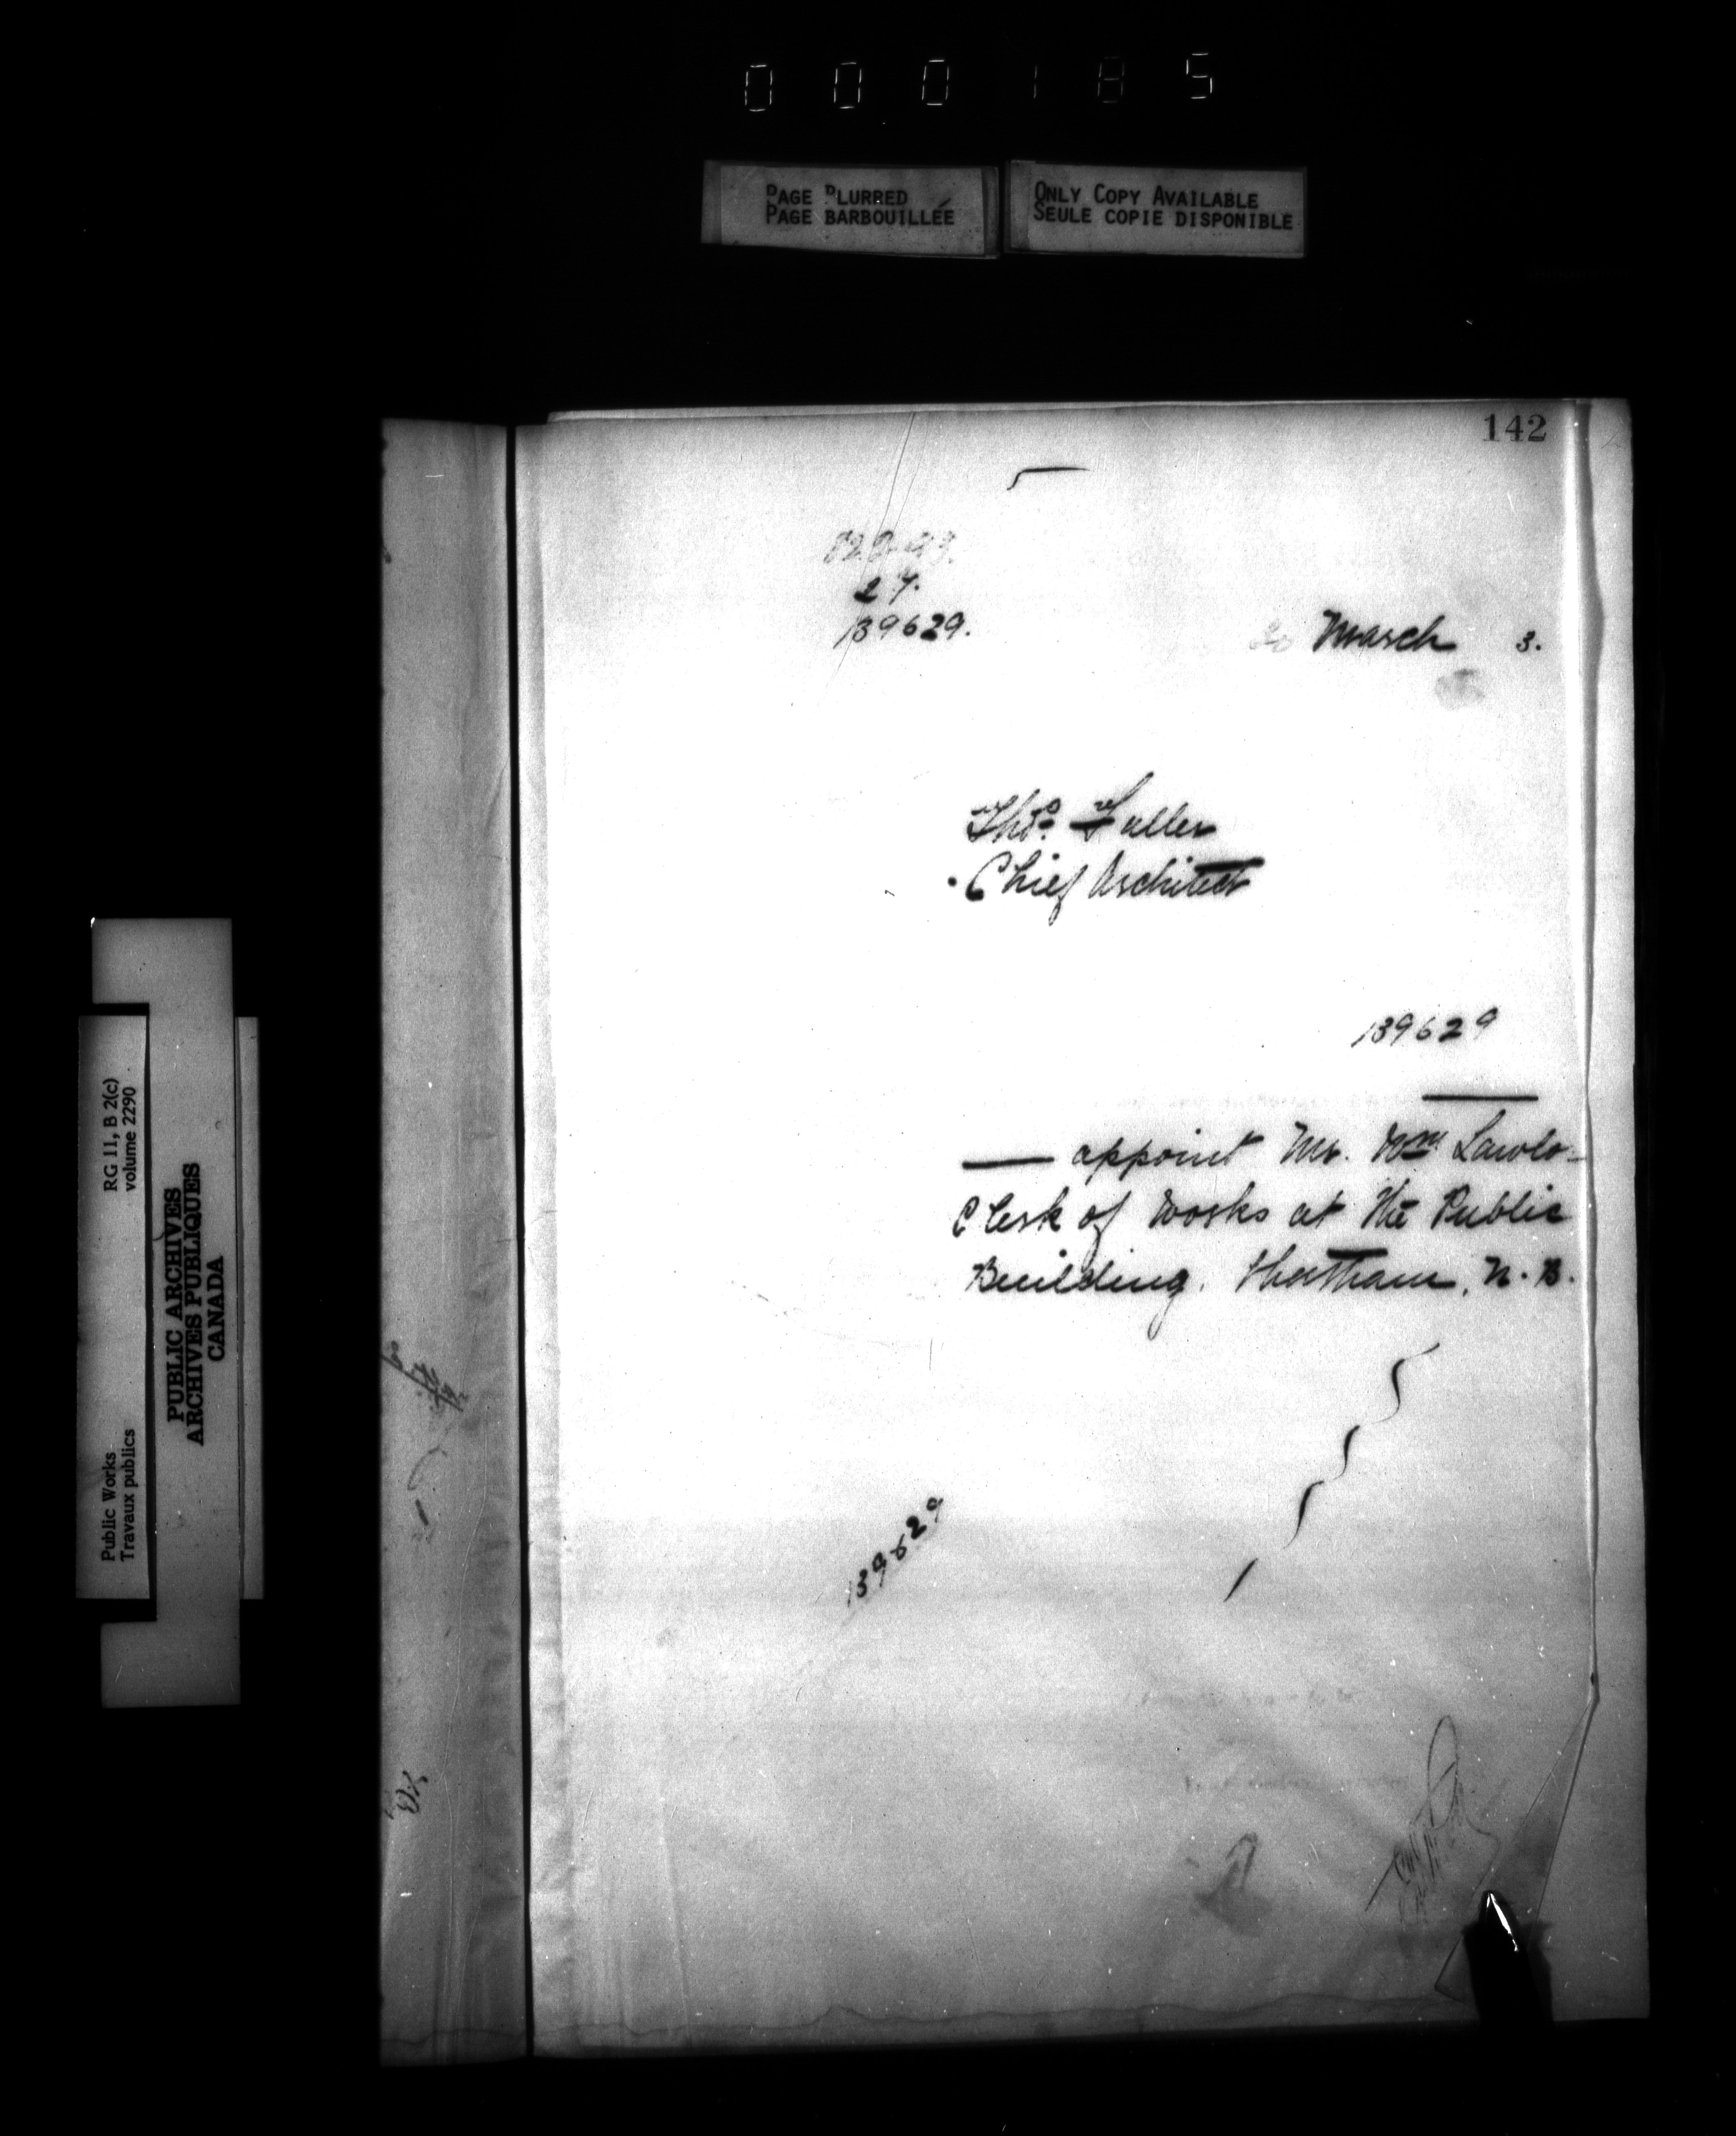 000185
PAGE BLURRED
PAGE BARBOUILLÉE
ONLY COPY AVAILABLE
SEULE COPIE DISPONIBLE
142
27.
139629.
20 March 3.
Thos. Fuller
Chief Architect
139629
appoint Mr. Wm. Lawlo-
Clerk of Works at the Public
Building. Chatham, N.B.
139629
RG 11, B 2(c)
volume 2290
PUBLIC ARCHIVES
ARCHIVES PUBLIQUES
CANADA
Public Works
Travaux publics